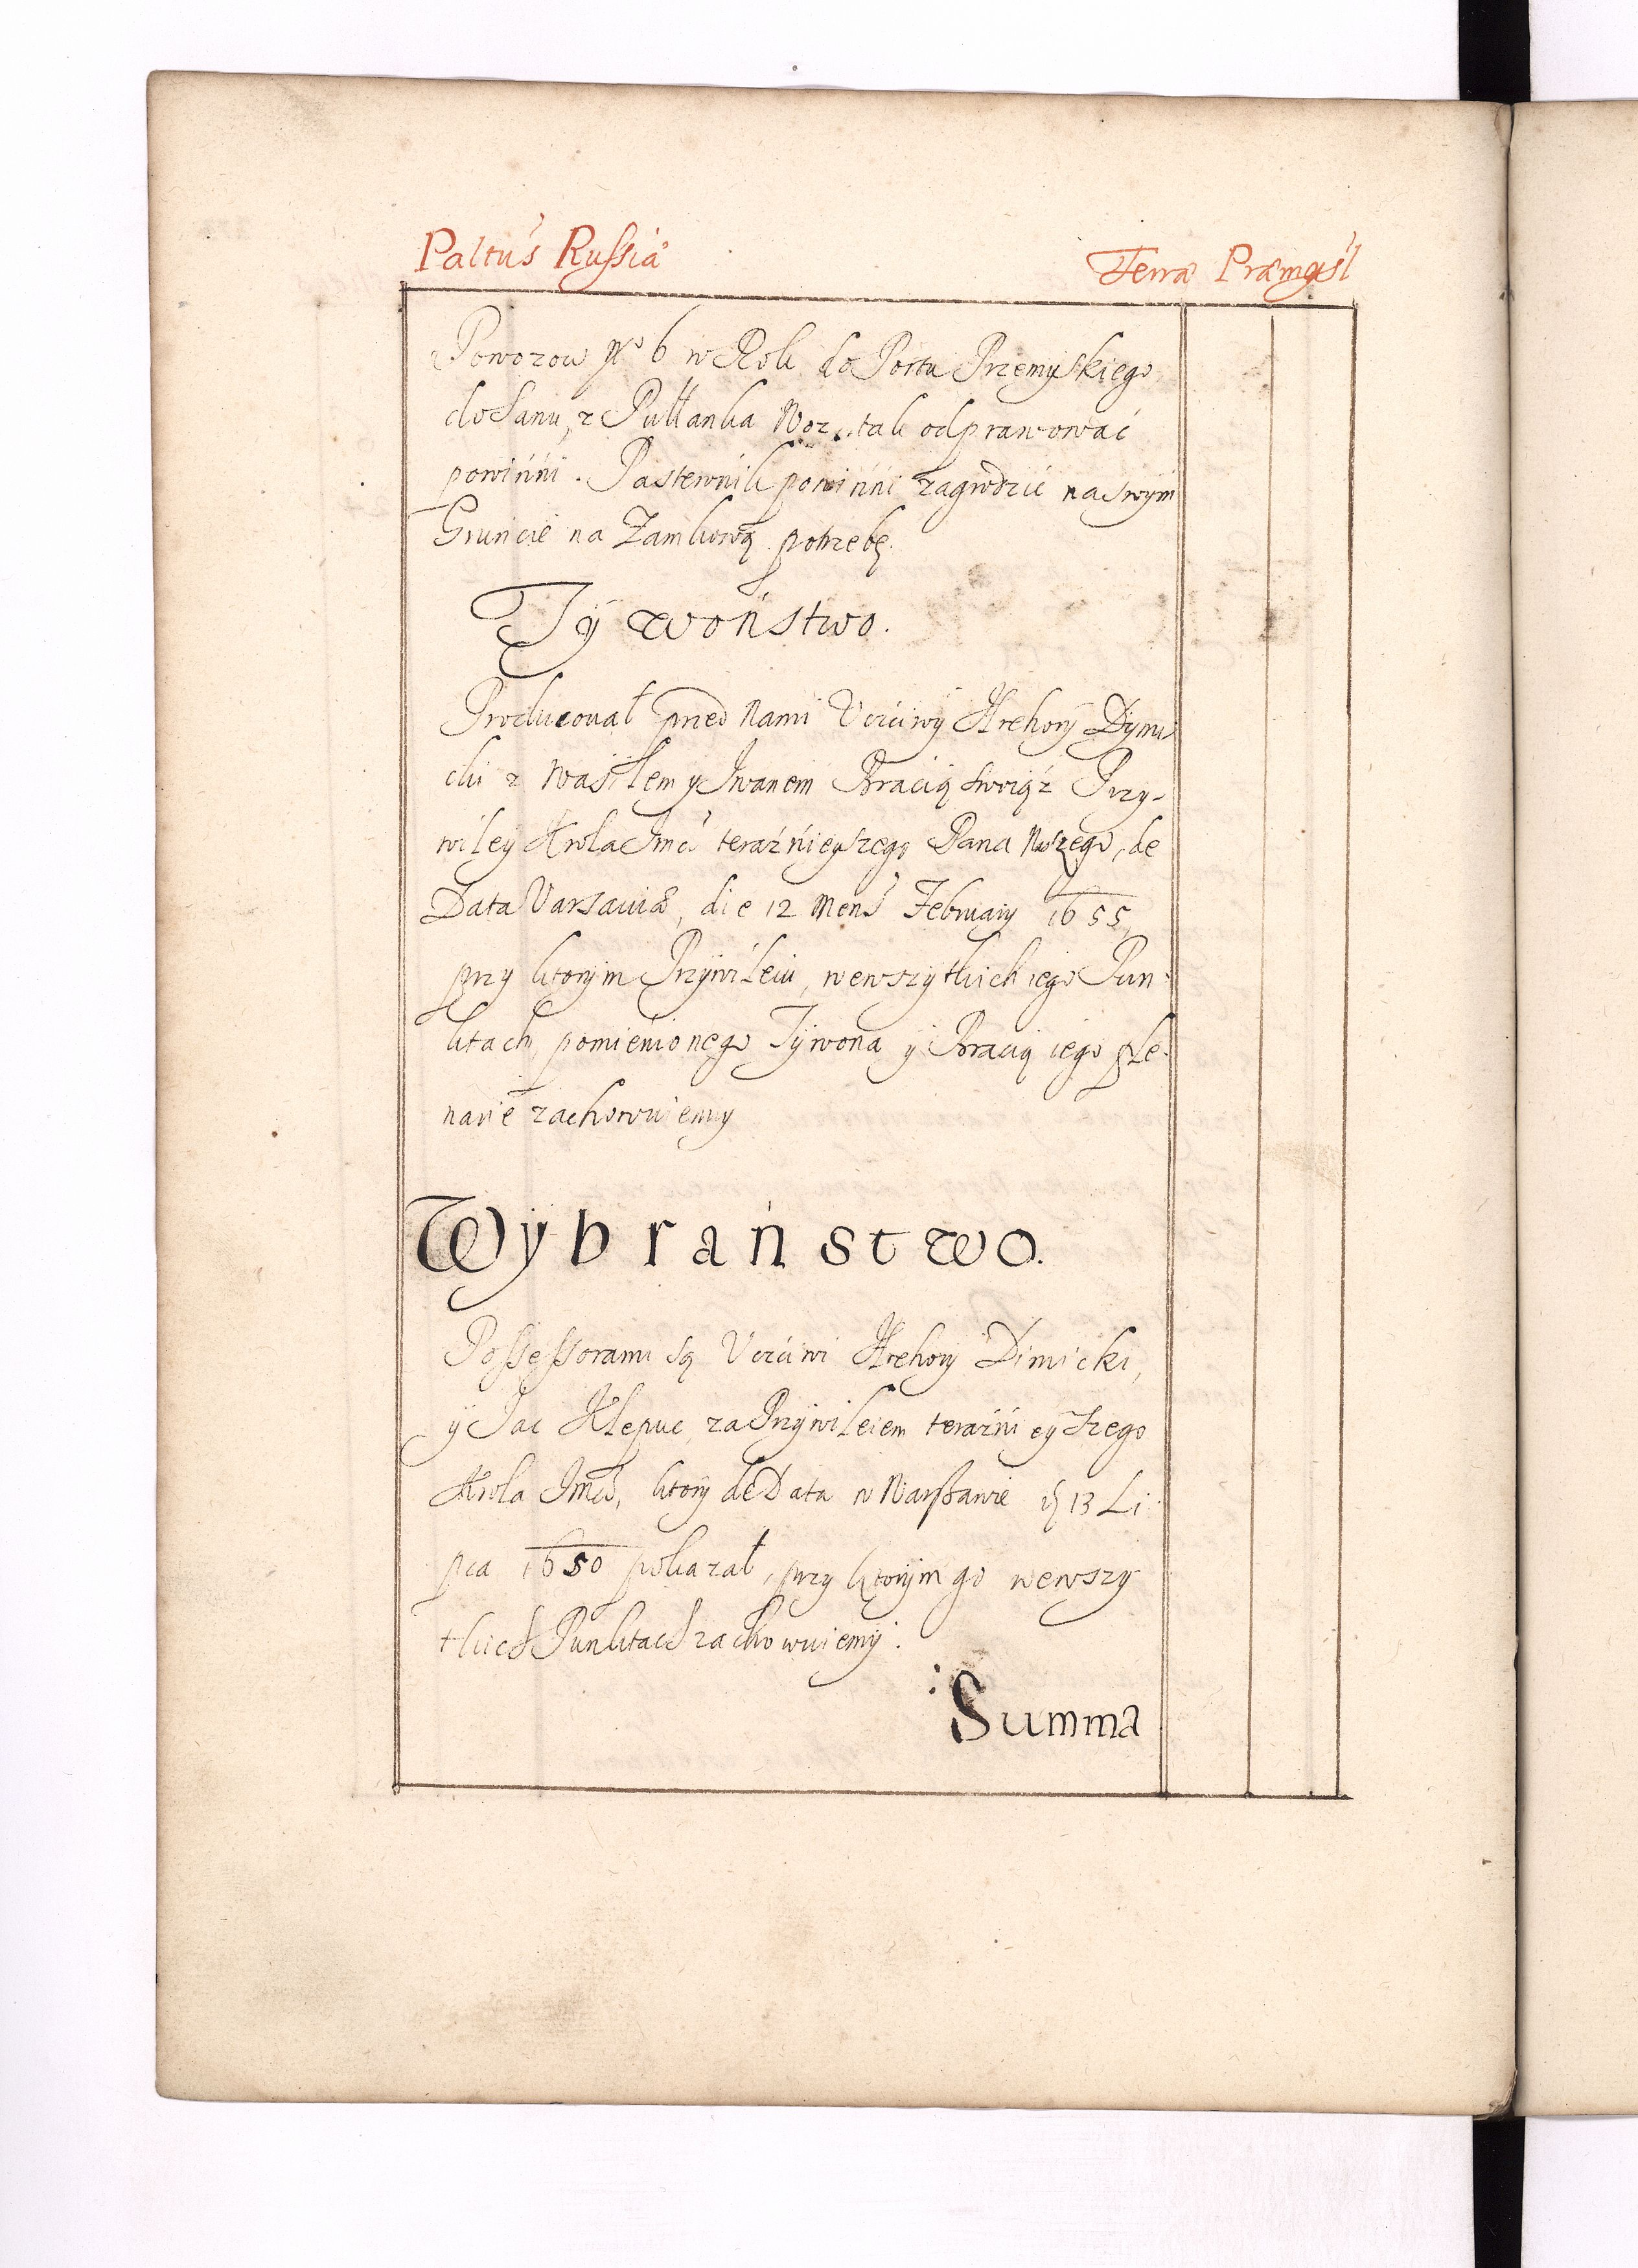 Paltus Russiæ
Terræ Præmysl
Powozow No 6 w Rok do Portu Przemyskiego
do Sanu, z Pułłanka Woz tak odprawować
powinni. Pastewnik powinni zagrodzić na swym
Gruncie na Zamkową potrzebę.
Tywoństwo.
Producował przed Nami Uczciwy Hrehory Dymi
cki z Wasilem y Iwanem Bracią swoią z Przy-
wiley Krola Jmci teraznieyszego Pana Naszego, de
Data Varsaviæ, die 12 Mens Februarij 1655,
przy ktorym Przywileiu, we wszytkich iego Pun-
ktach, pomienionego Tywona y Bracią iego ple-
narie zachowuiemy
Wybraństwo.
Possessorami są Uczciwi Hrehory Dimicki,
y Jac Klepuc, za Przywileiem teraznieyszego
Krola Jmci, ktory de Data w Warszawie 13 Li
pca 1650 pokazał, przy ktorym go we wszy
tkich Punktach zachowuiemy.
Summa